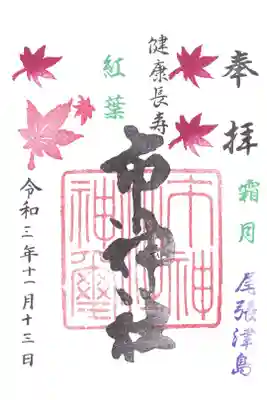 奉拝
霜月
尾張津島
健康長寿
紅葉
市神社
令和三年十一月十三日
市神
神璽